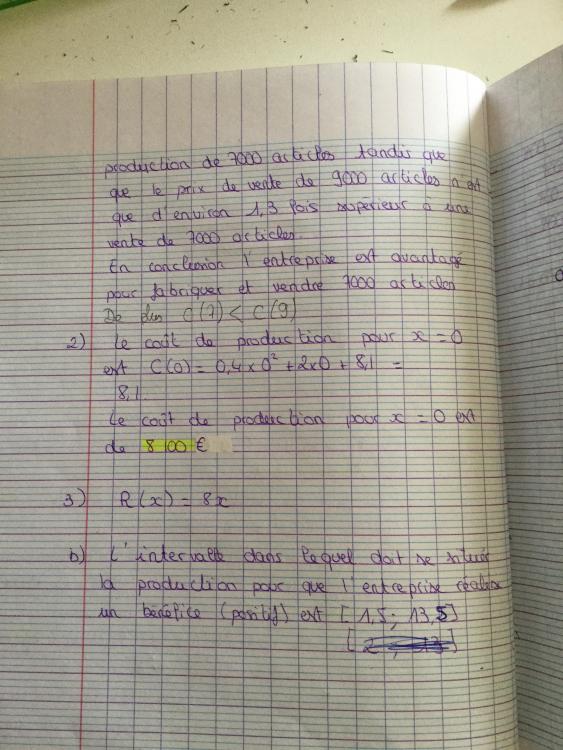 production de 7000 articles tandis que
que le prix de vente de 9000 articles n'est
que d'environ 1,3 fois supérieur à une
vente de 7000 articles.
En conclusion l'entreprise est avantagé
pour fabriquer et vendre 7000 articles
De plus C(7) < C(9)
2) Le coût de production pour x = 0
est C(0) = 0,4 x 0² + 2x0 + 8,1 =
8,1.
Le coût de production pour x = 0 est
de 8 100 €
3) R(x) = 8x
b) L'intervalle dans lequel doit se situer
la production pour que l'entreprise réalise
un bénéfice (positif) est [1,5 ; 13,5]